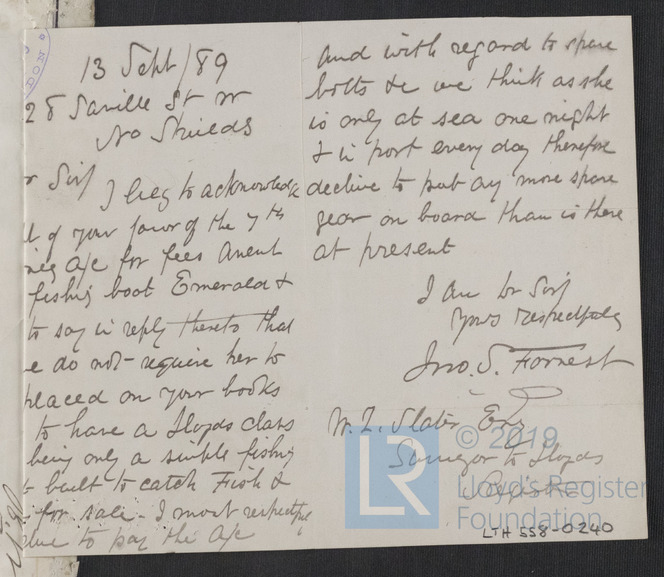 13 Sept/89
28 Saville St W
No Shields
r Sir/
I beg to acknowledge
t of your favor of the 7th
a/c for fees anent
fishing boat Emerald &
to say in reply thereto that
e do not require her to
placed on your books
to have a Lloyds class
being only a simple fishing
built to catch Fish &
for sale. I most respectfully
to pay the a/c
And with regard to spare
bolts &c we think as she
is only at sea one night
& in port every day therefore
decline to put any more spare
gear on board than is there
at present
I am Dr Sir/
Yours respectfully
Jno. S. Forrest
W. L. Slater Esq
Surveyor to Lloyds
Register
LR
© 2019
Lloyd's Register
Foundation
LTH 558-0240
DON